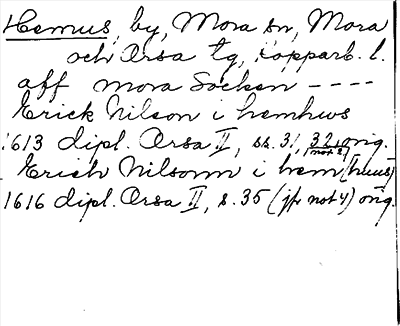 Hemus, by, Mora sn, Mora
och Orsa tg, Kopparb. l.
aff mora Socken ----
Erick Nilson i hemhws
1613 dipl. Orsa II, ss. 31, 32 orig.
(not 2)
Erich Nilsonn i hem(huus)
1616 dipl. Orsa II, s. 35 (jfr not 4) orig.